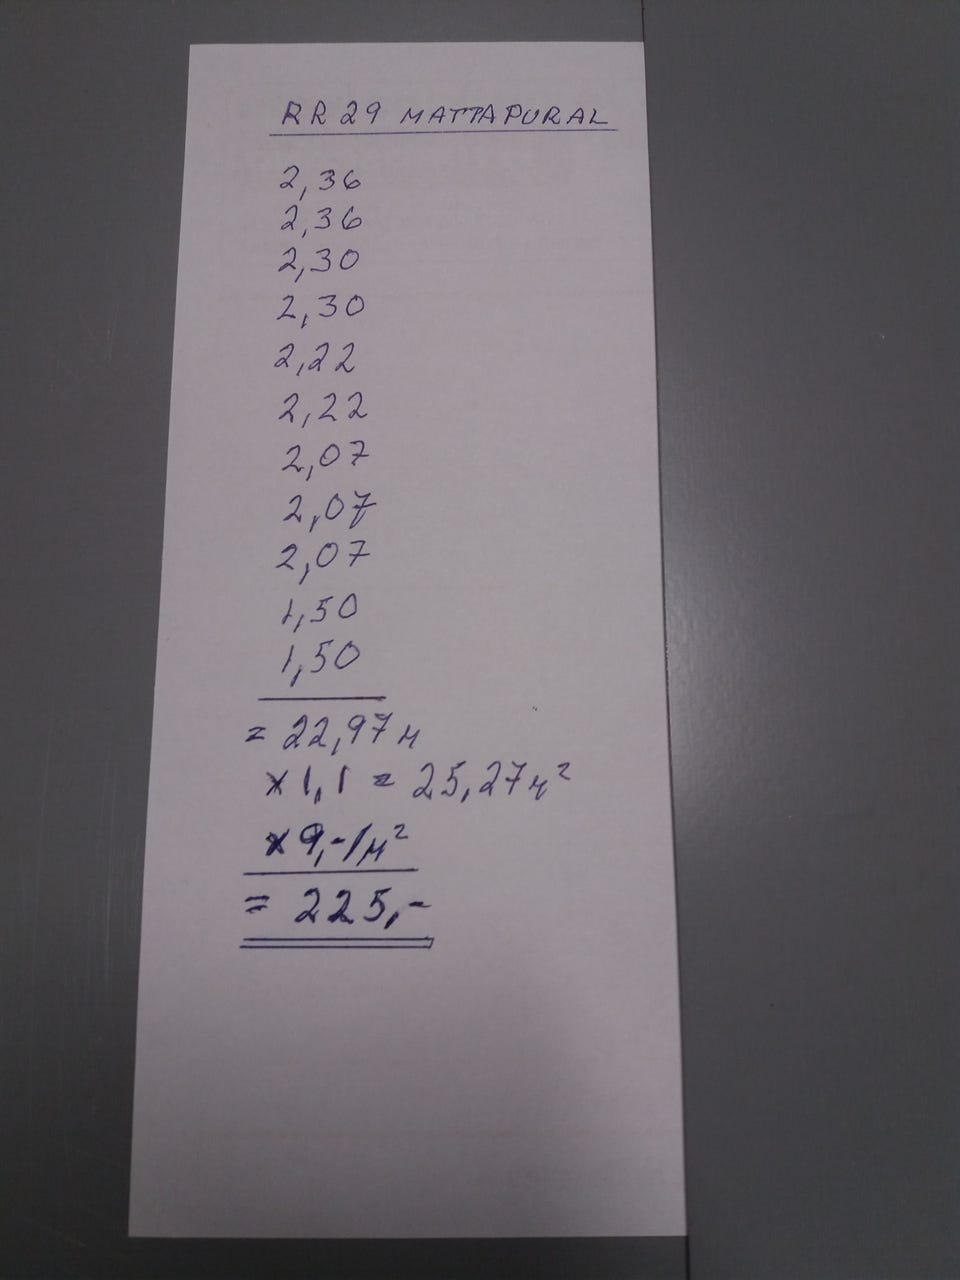 RR 29 MATTAPURAL
2,36
2,36
2,30
2,30
2,22
2,22
2,07
2,07
2,07
1,50
1,50
= 22,97 M
x 1,1 = 25,27 M²
x 9,-/M²
= 225,-